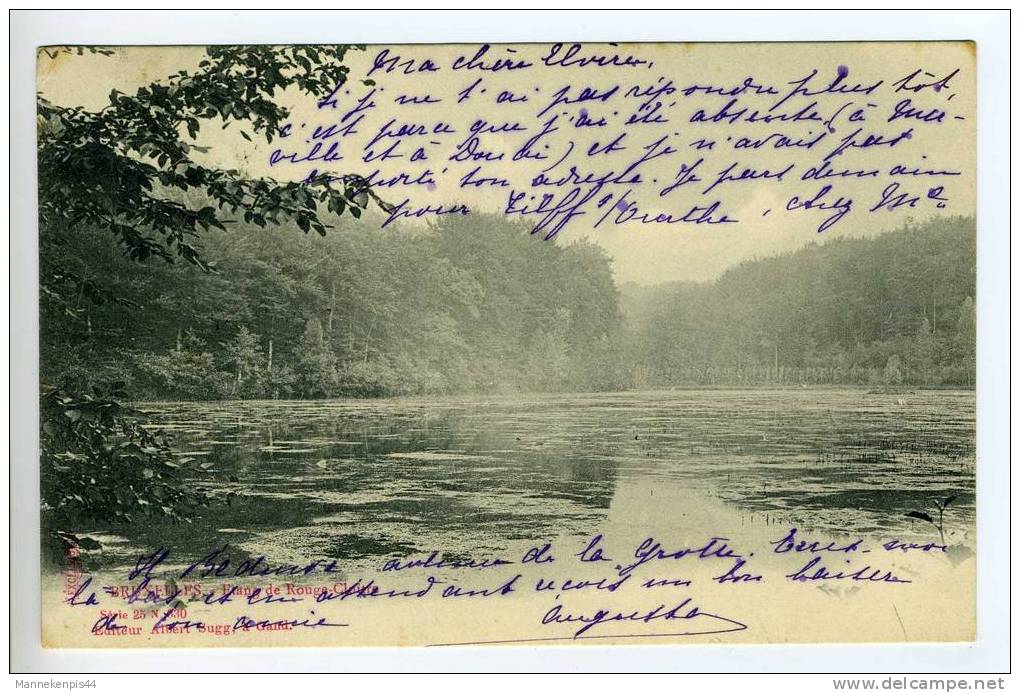 Ma chère Elvire,
Si je ne t'ai pas répondu plus tôt,
c'est parce que j'ai été absente (à Mer-
ville et à Douai) et je n'avais pas
emporté ton adresse. Je pars demain
pour Tilff s/ Ourthe, chez Me
Bedeur avenue de la Grotte. Ecris-moi
la et en attendant reçois un bon baiser
de ton amie Augusta
BRUXELLES. - Etang de Rouge-Cloître
Série 25 N. 330
Editeur Albert Sugg, à Gand.
Mannekenpis44
www.delcampe.net